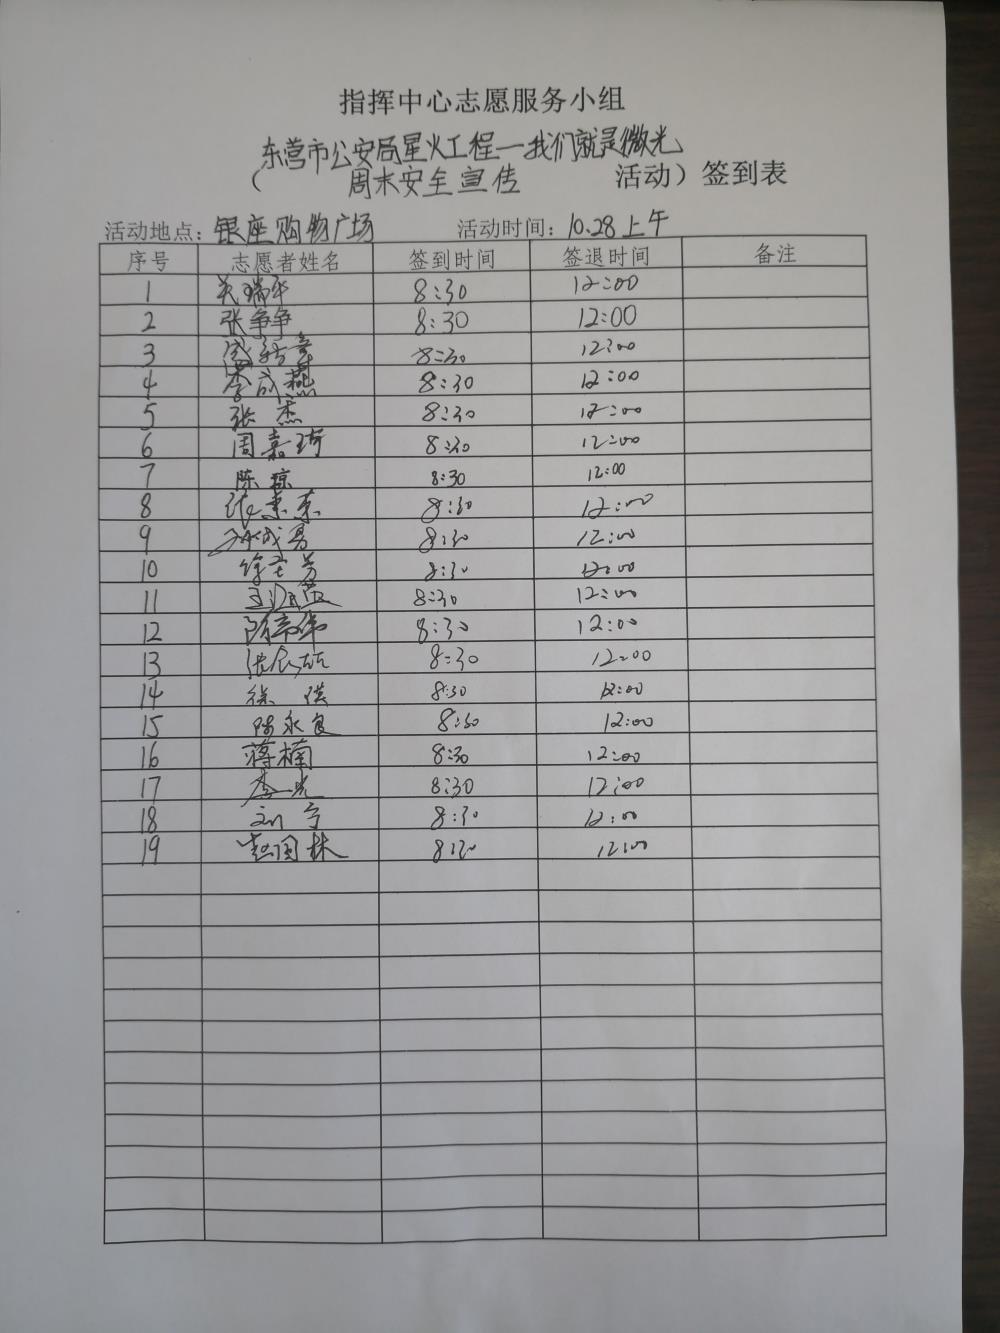 指挥中心志愿服务小组
东营市公安局星火工程—我们就是微光
( 周末安全宣传 活动) 签到表
活动地点: 银座购物广场 活动时间: 10.28上午
序号 志愿者姓名 签到时间 签退时间 备注
1 8:30 12:00
2 张争争 8:30 12:00
3 8:30 12:00
4 李成燕 8:30 12:00
5 张杰 8:30 12:00
6 周嘉琦 8:30 12:00
7 陈琼 8:30 12:00
8 8:30 12:00
9 8:30 12:00
10 8:30 12:00
11 8:30 12:00
12 8:30 12:00
13 8:30 12:00
14 徐琪 8:30 12:00
15 陈永良 8:30 12:00
16 蒋楠 8:30 12:00
17 8:30 12:00
18 刘宁 8:30 12:00
19 赵国林 8:30 12:00